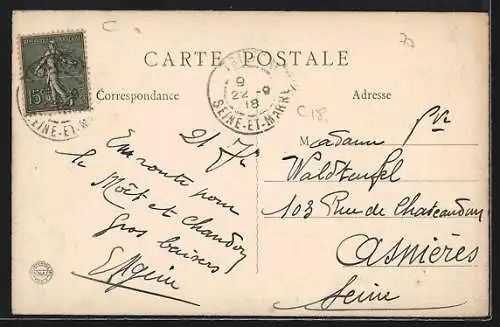 CARTE POSTALE
Correspondance
Adresse
15
SEINE-ET-M
9
22 - 9
18
SEINE-ET-MARNE
C18
21 7bre
En route pour
le Moët et Chandon
Gros baisers
Madame
Waldteufel
103 Rue de Chateaudun
Asnières
Seine